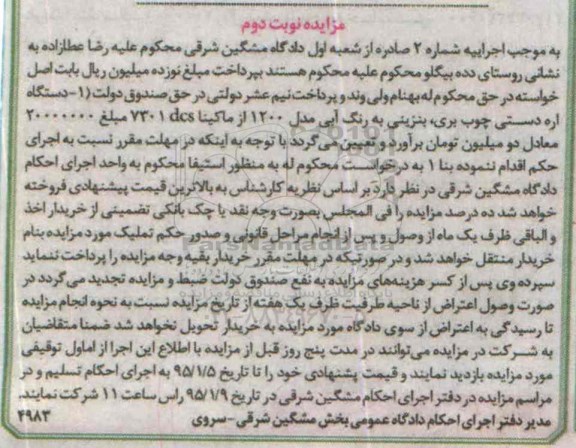 مزایده نوبت دوم
به موجب اجراییه شماره ۲ صادره از شعبه اول دادگاه مشگین شرقی محکوم علیه رضا عطازاده به
نشانی روستای دده بیگلو محکوم علیه محکوم هستند بپرداخت مبلغ نوزده میلیون ریال بابت اصل
خواسته در حق محکوم له بهنام ولی وند و پرداخت نیم عشر دولتی در حق صندوق دولت (۱-دستگاه
اره دستی چوب بری، بنزینی به رنگ آبی مدل ۱۲۰۰ از ماکیتا dcs ۷۳۰۱ مبلغ ۲۰۰۰۰۰۰۰
معادل دو میلیون تومان برآورد و تعیین می گردد با توجه به اینکه در مهلت مقرر نسبت به اجرای
حکم اقدام ننموده بنا ۱ به درخواست محکوم له به منظور استیفا محکوم به واحد اجرای احکام
دادگاه مشگین شرقی در نظر دارد بر اساس نظریه کارشناس به بالاترین قیمت پیشنهادی فروخته
خواهد شد ده درصد مزایده را فی المجلس بصورت وجه نقد یا چک بانکی تضمینی از خریدار اخذ
و الباقی ظرف یک ماه از وصول و پس از انجام مراحل قانونی و صدور حکم تملیک مورد مزایده بنام
خریدار منتقل خواهد شد و در صورتیکه در مهلت مقرر خریدار بقیه وجه مزایده را پرداخت ننماید
سپرده وی پس از کسر هزینه‌های مزایده به نفع صندوق دولت ضبط و مزایده تجدید می گردد در
صورت وصول اعتراض از ناحیه طرفیت ظرف یک هفته از تاریخ مزایده نسبت به نحوه انجام مزایده
تا رسیدگی به اعتراض از سوی دادگاه مورد مزایده به خریدار تحویل نخواهد شد ضمنا متقاضیان
به شرکت در مزایده می‌توانند در مدت پنج روز قبل از مزایده با اطلاع این اجرا از اماول توقیفی
مورد مزایده بازدید نمایند و قیمت پشنهادی خود را تا تاریخ ۹۵/۱/۵ به اجرای احکام تسلیم و در
مراسم مزایده در دفتر اجرای احکام مشگین شرقی در تاریخ ۹۵/۱/۹ راس ساعت ۱۱ شرکت نمایند.
مدیر دفتر اجرای احکام دادگاه عمومی بخش مشگین شرقی-سروی ۴۹۸۳